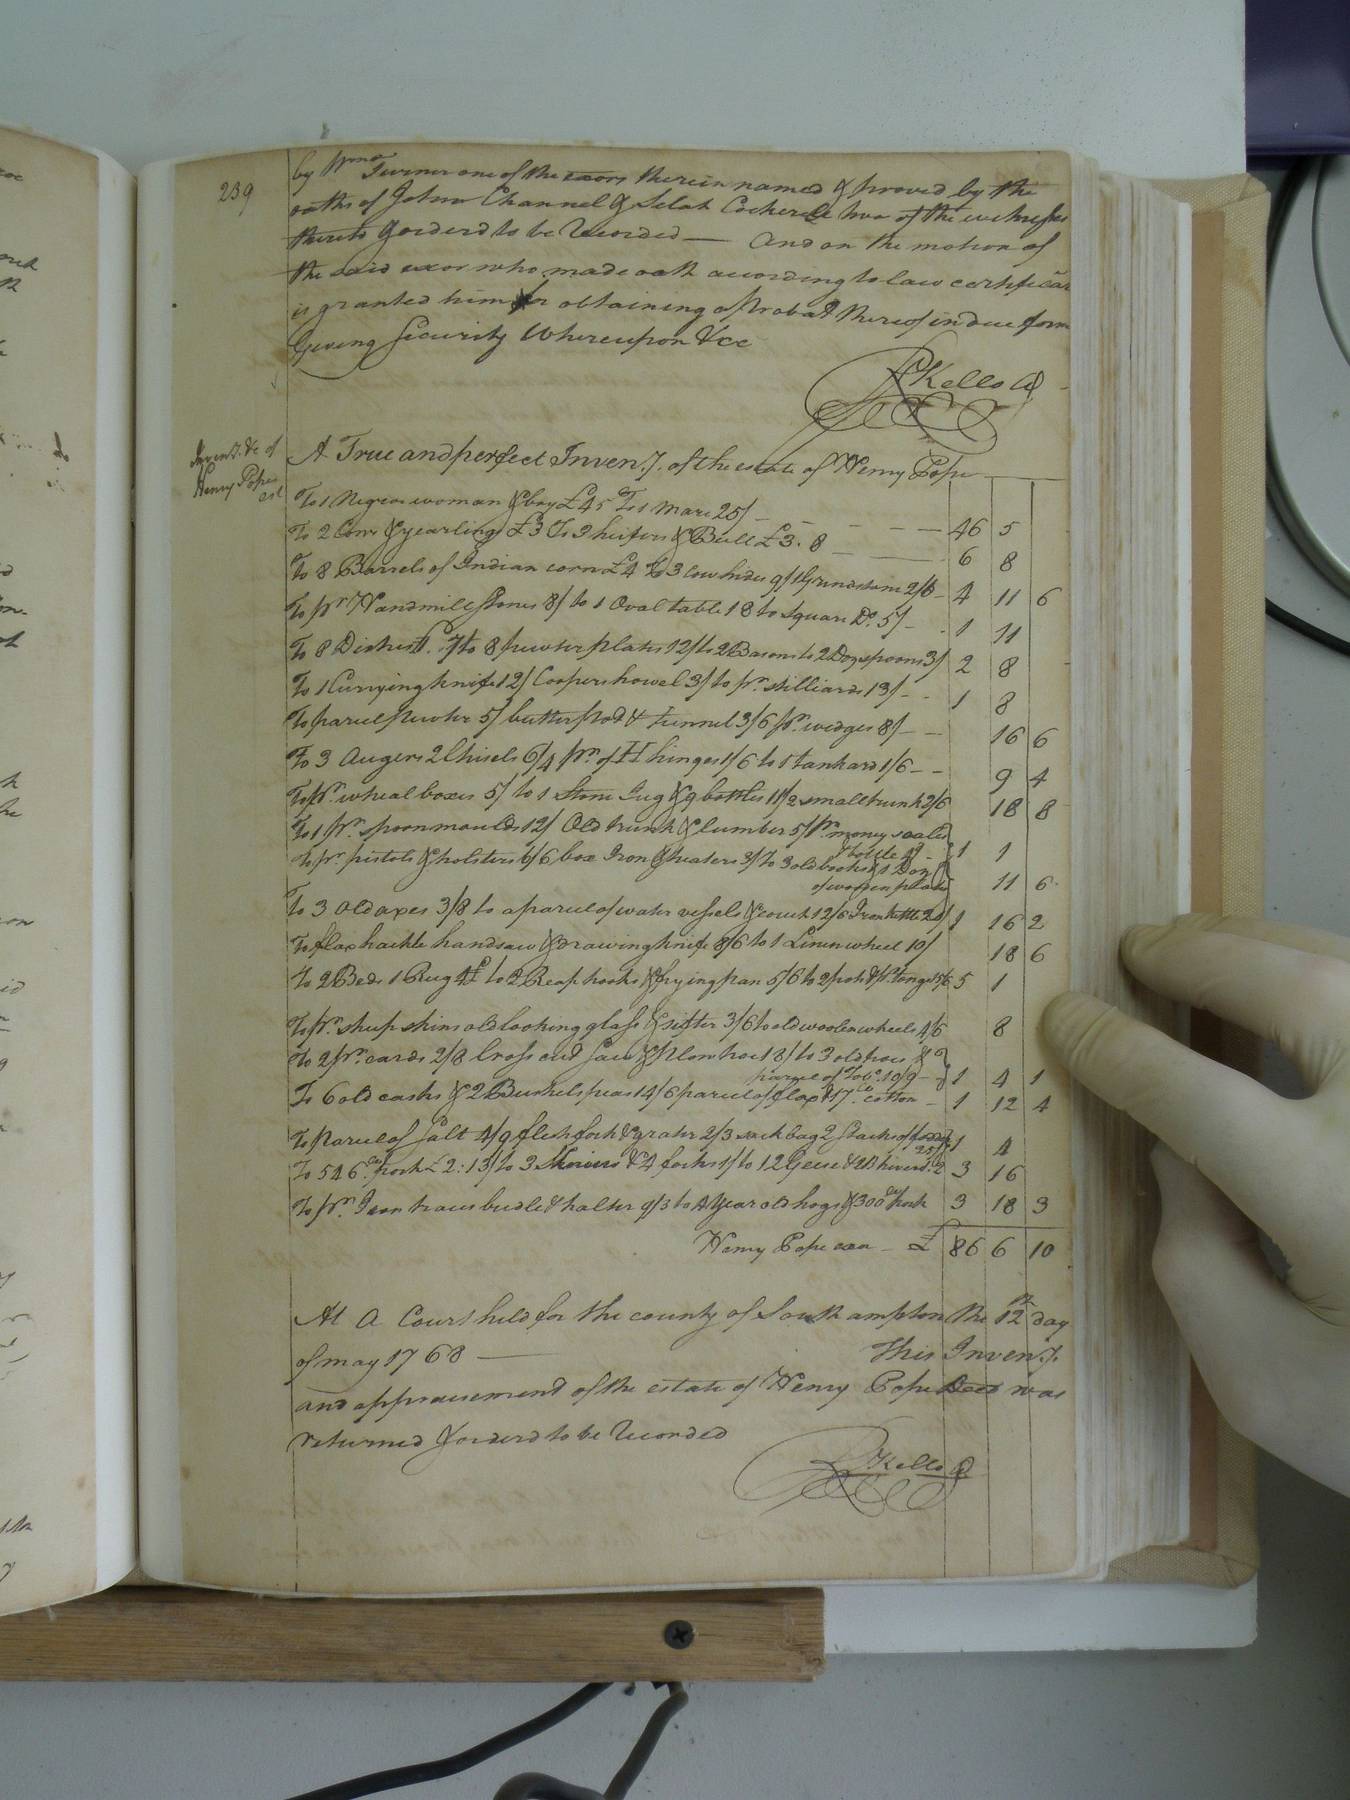 239
by Wm Turner one of the exors therein named & proved by the
oaths of John Channel & Selah Cockerele two of the witnesses
thereto & orderd to be Recorded — And on the motion of
the said exor who made oath according to law certificat
is granted him for obtaining a Probat thereof in due form
Giving Security Whereupon &cc
RKello Cl
Invent. &c of
Henry Popes
est
A True and perfect Inven.y. of the estate of Henry Pope
To 1 Negroe woman & boy £45 To 1 Mare 25/ - - - 46 5
To 2 Cows & yearling £3 To 3 heifers & Bull £3.8 - - 6 8
To 8 Barrels of Indian corn £4 To 3 Cow hides 9/ 1 Grindstone 2/6 - 4 11 6
To pr Handmill Stones 8/ to 1 Oval table 18 to square Do. 5/ - 1 11
To 8 Dishes 7 to 8 pewter plates 12/ to 2 Basons to 2 Doz spoons 3/ 2 8
To 1 Currying knife 12/ Coopers howel 3/ to pr. stilliards 13/ - - 1 8
To parcel pewter 5/ butter pot & tunnel 3/6 pr. wedges 8/ - - 16 6
To 3 Augers 2 Chisels 6/4 pr. of H hinges 1/6 to 1 tankard 1/6 - - 9 4
To pr. wheal boxes 5/ to 1 Stone Jug & 9 bottles 11/2 small trunk 2/6 18 8
To 1 pr. spoon moulds 12/ Old trunk & lumber 5/ pr. money scales
& bottle - 1 1
To pr. pistols & holsters 6/6 box Iron & heaters 3/ to 3 old books & 1 Doz
of wooden plates 11 6
To 3 Old axes 3/8 to a parcel of water vessels & couch 12/6 Iron kettle 20/ 1 16 2
To flax hackle handsaw & drawing knife 8/6 to 1 Linen wheel 10/ 18 6
To 2 Beds 1 Rug 4£ to 2 Reap hooks & frying pan 5/6 to 2 pots & pr. tongs 15/6 5 1
To pr. sheep shins old looking glass & sifter 3/6 to old woolen wheels 4/6 8
To 2 pr. cards 2/8 Cross cut Saw & plow hoe 18/ to 3 old hoes &
parcel of Tobo. 10/9 - 1 4 1
To 6 old casks & 2 Bushels peas 14/6 parcel of flax & 17 lb cotton - 1 12 4
To Parcel of Salt 4/9 flesh fork & grater 2/3 sack bag 2 Stacks of fodder
25/ 1 4
To 546 lb pork £2:13/ to 3 Skewers & 4 forks 1/ to 12 Geese & B 2 3 16
To pr. Iron traces bridle & halter 9/3 to 4 Year old hogs & 300 lb pork 3 18 3
Henry Pope exor - £ 86 6 10
At A Court held for the county of Southampton the 12th day
of may 1768 — This Inven.y.
and appraisement of the estate of Henry Pope Decd was
returned & orderd to be Recorded
RKello Cl